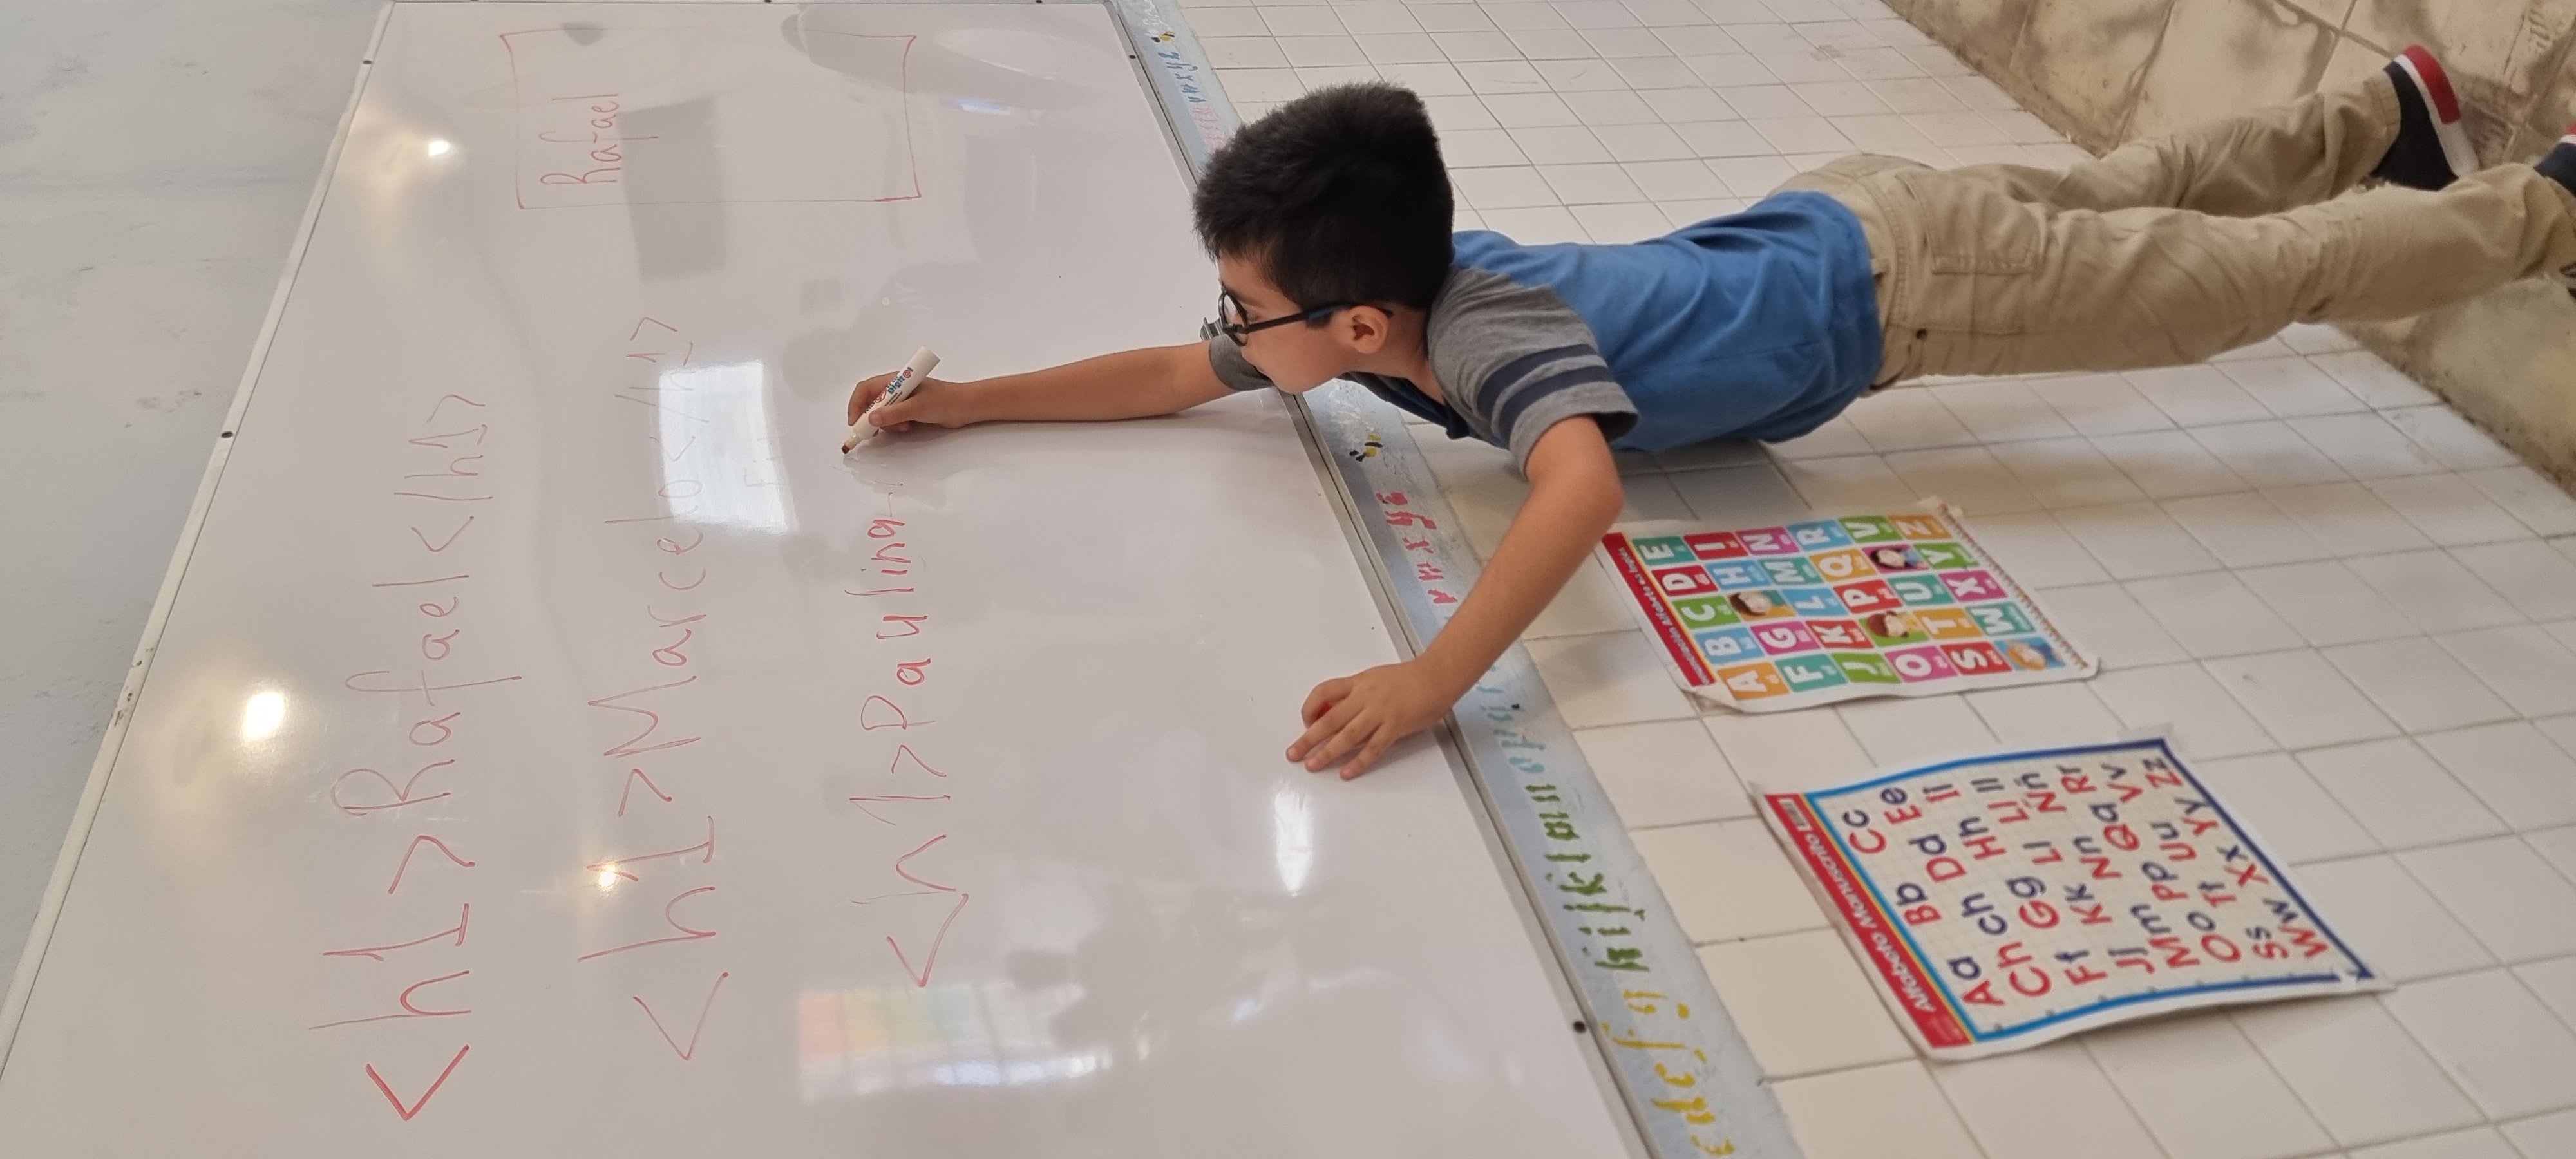 <h1>Rafael</h1>
Rafael
<h1>Marcelo</h1>
<h1>Paulina
c d e f g h i j k l m n o p q r
v w x y z
v w x y z
Alfabeto Manuscrito
Aa Bb Cc
Ch ch Dd Ee
Ff Gg Hh Ii
Jj Kk Ll Ll ll
Mm Nn Ññ
Oo Pp Qq Rr
Ss Tt Uu Vv
Ww Xx Yy Zz
Alfabeto en Inglés
A B C D E
F G H I
J K L M N
O P Q R
S T U V
W X Y Z